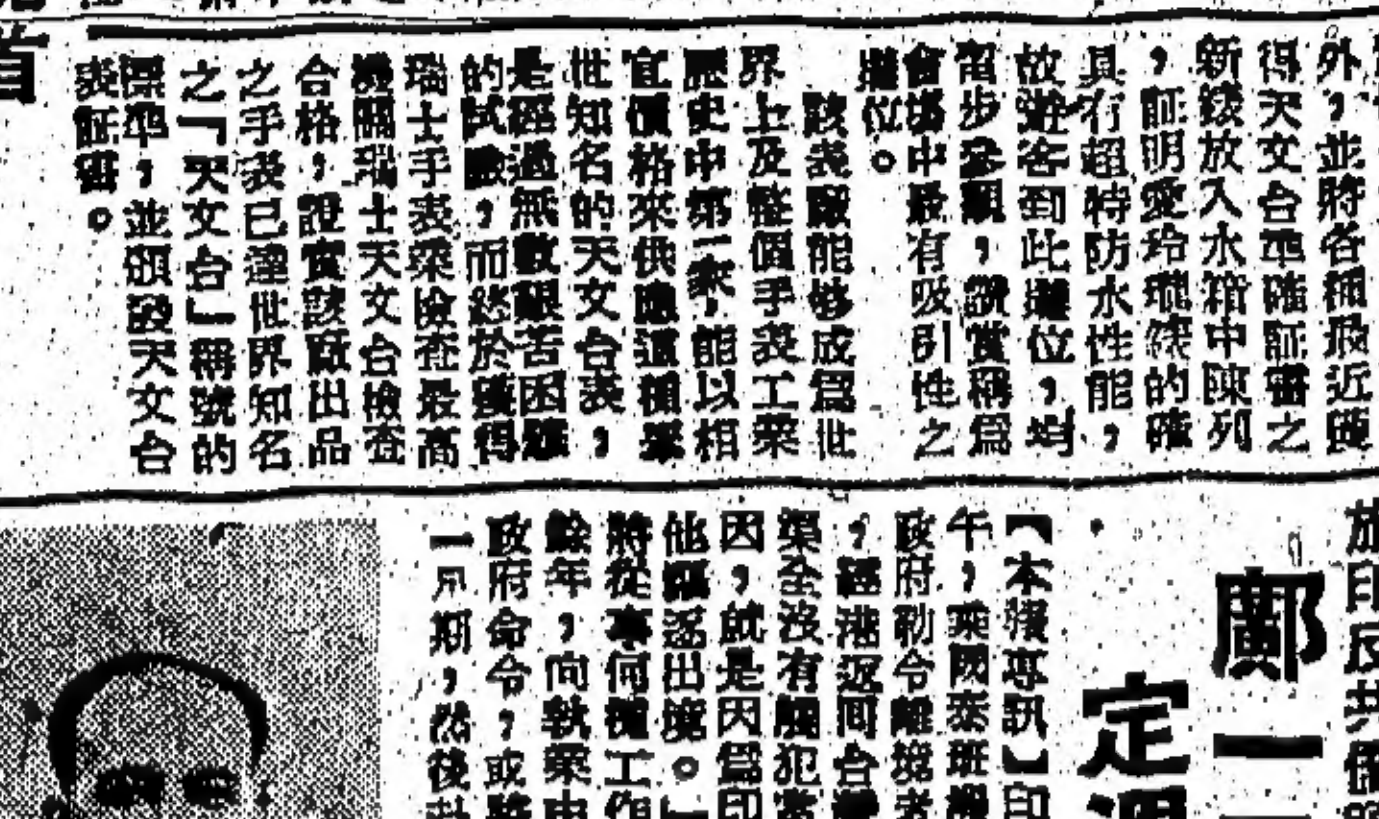 外，並將各種最近獲
得天文台準確証書之
新錶放入水箱中陳列
，証明愛玲瓏錶的確
具有超特防水性能，
故遊客到此攤位，均
留步參觀，讚賞稱爲
會場中最有吸引性之
攤位。
該表廠能够成爲世
界上及整個手表工業
歷史中第一家，能以相
宜價格來供應這種舉
世知名的天文台表，
是經過無數艱苦困難
的試驗，而終於獲得
瑞士手表業檢查最高
機關瑞士天文台檢查
合格，證實該廠出品
之手表已達世界知名
之「天文台」稱號的
標準，並頒發天文台
表証書。
旅印反共僑
鄺一
定
【本報專訊】印
午，乘國泰班機
政府勒令離境者
，經港返回台
渠全沒有觸犯
因，就是因爲印
他驅逐出境。
將從事何種工作
餘年，向執業中
政府命令，或
一月期，然後
首